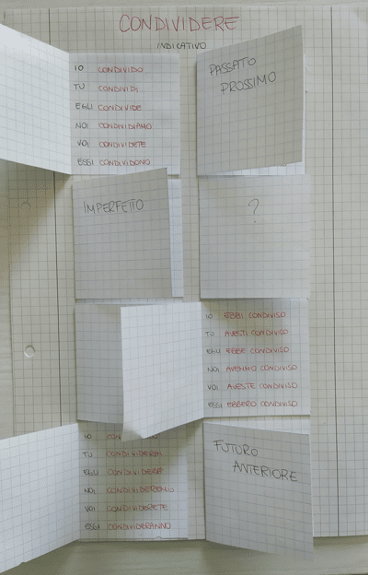 CONDIVIDERE
INDICATIVO
IO CONDIVIDO
TU CONDIVIDI
EGLI CONDIVIDE
NOI CONDIVIDIAMO
VOI CONDIVIDETE
ESSI CONDIVIDONO
PASSATO
PROSSIMO
IMPERFETTO
?
IO EBBI CONDIVISO
TU AVESTI CONDIVISO
EGLI EBBE CONDIVISO
NOI AVEMMO CONDIVISO
VOI AVESTE CONDIVISO
ESSI EBBERO CONDIVISO
IO CON
TU CONDIVIDERAI
EGLI CONDIVIDERÀ
NOI CONDIVIDEREMO
VOI CONDIVIDERETE
ESSI CONDIVIDERANNO
FUTURO
ANTERIORE